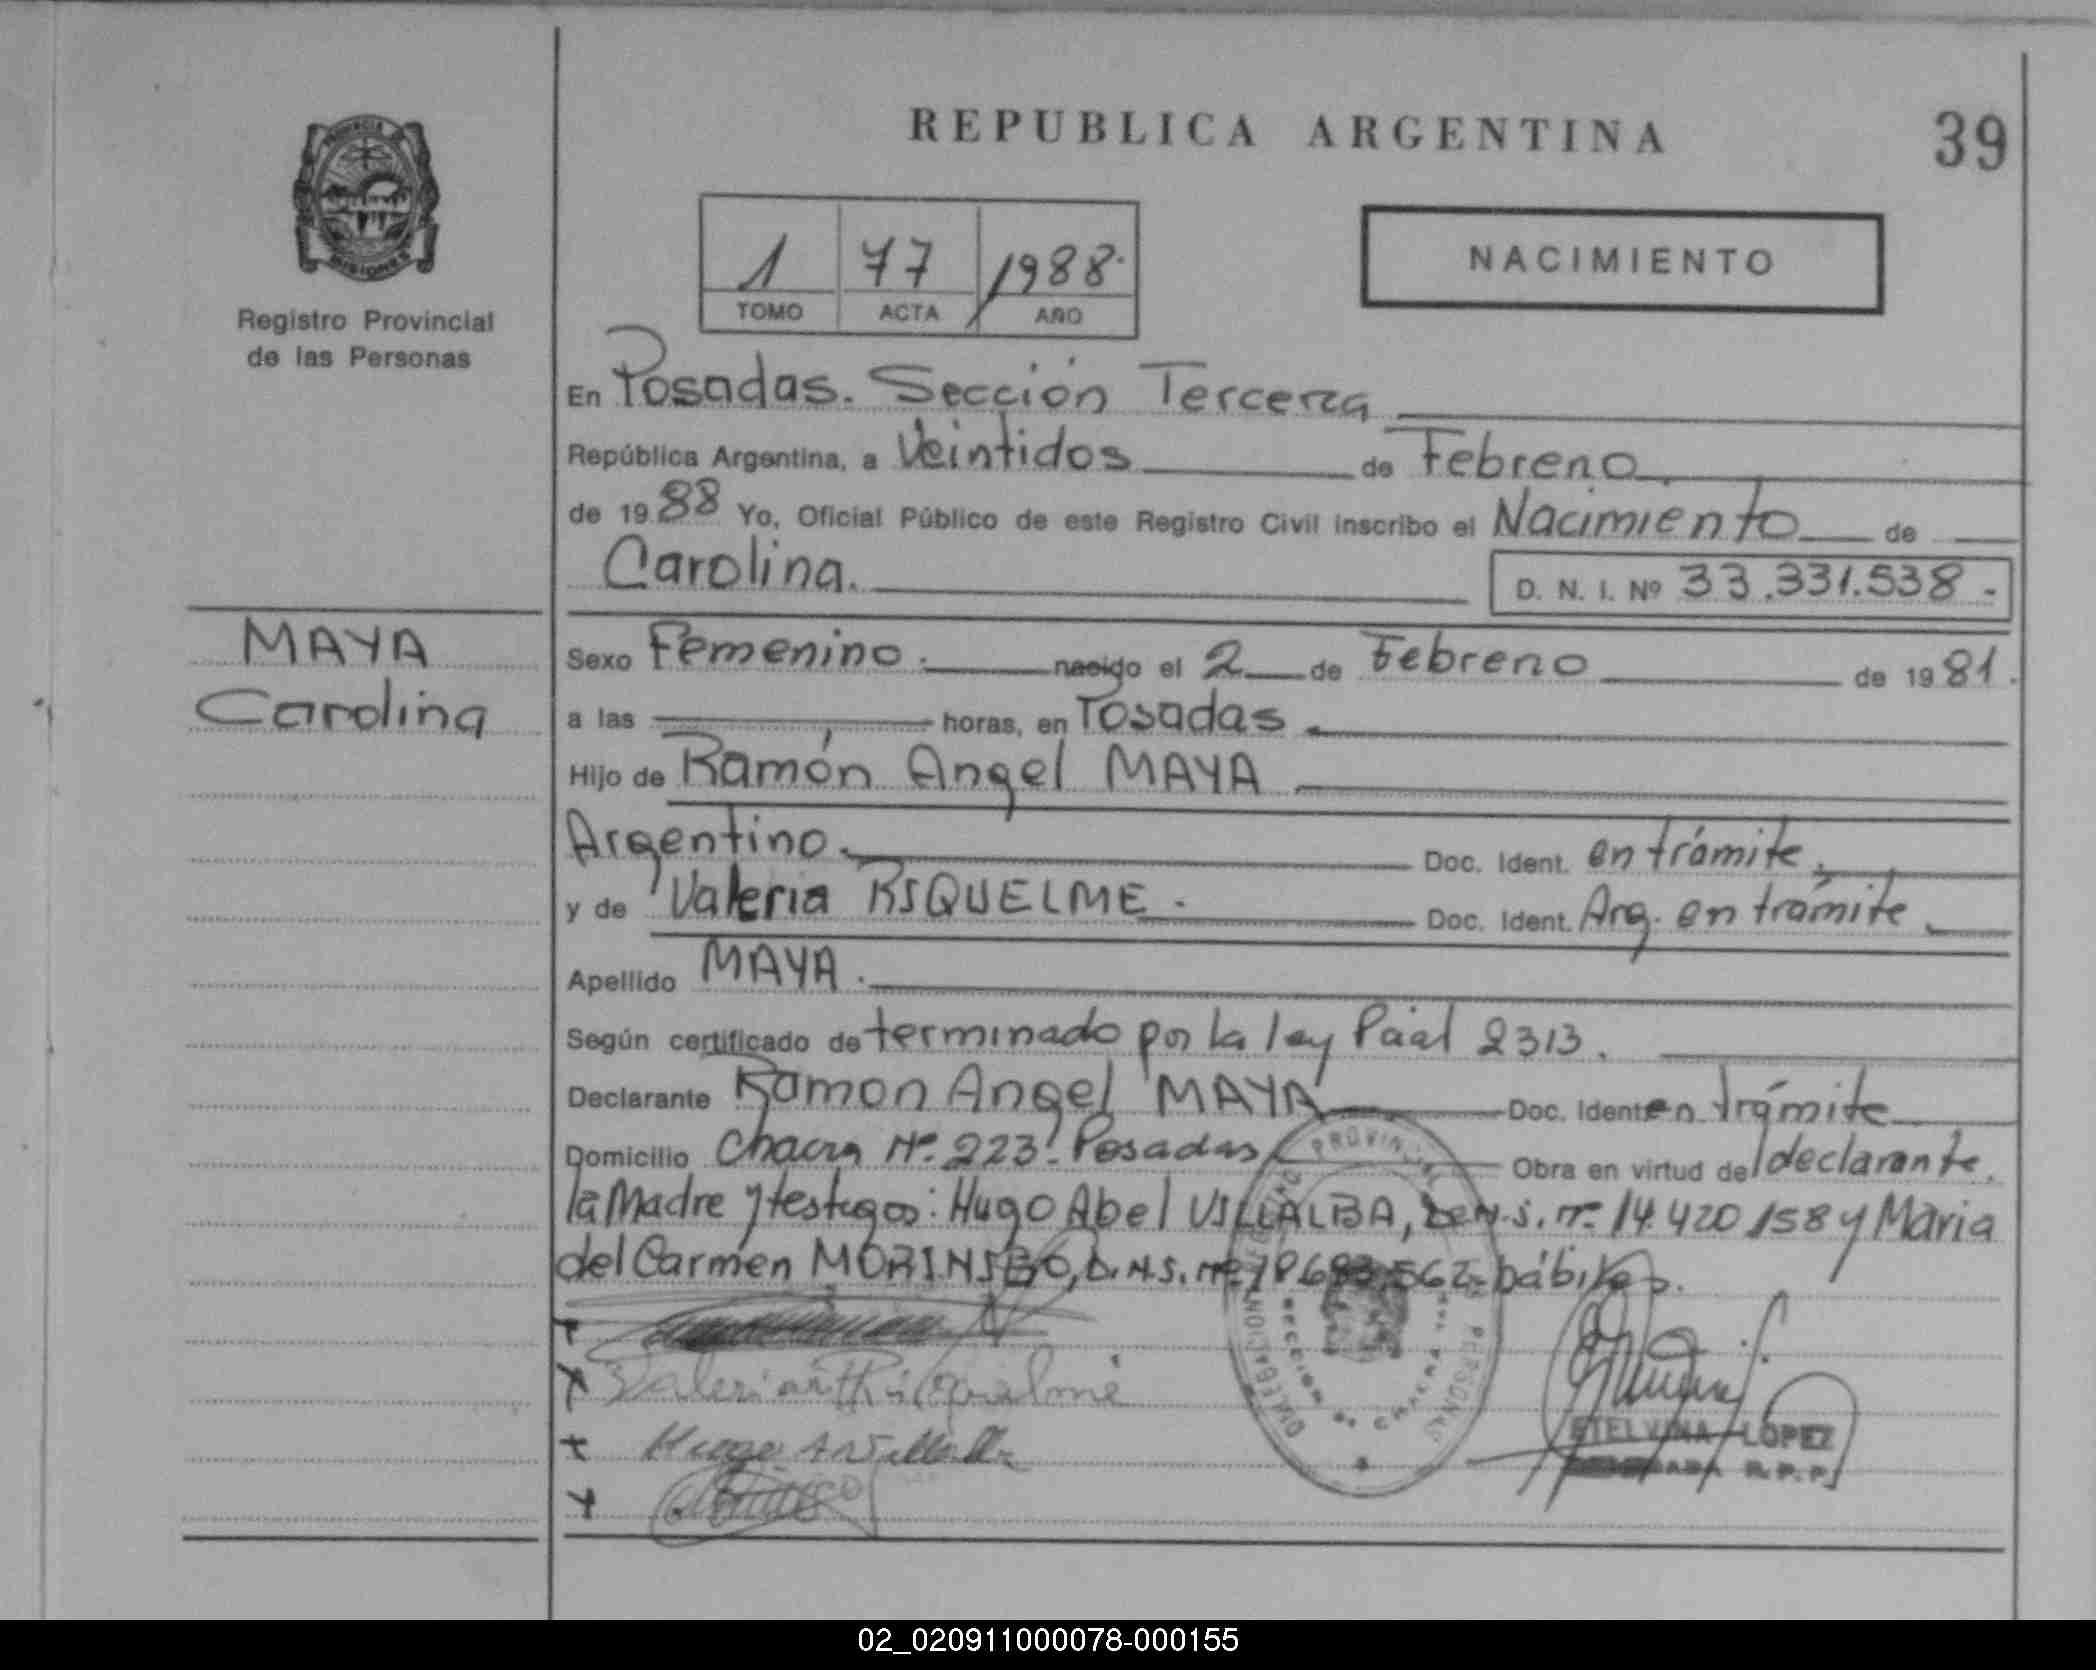 REPUBLICA ARGENTINA
39
1 77 1988.
TOMO ACTA AÑO
NACIMIENTO
PROVINCIA DE
MISIONES
Registro Provincial
de las Personas
En Posadas. Sección Tercera
República Argentina, a Veintidos de Febrero
de 1988 Yo, Oficial Público de este Registro Civil inscribo el Nacimiento de
Carolina.
D. N. I. Nº 33.331.538.-
MAYA
Carolina
Sexo Femenino. nacido el 2 de Febrero de 1981.
a las horas, en Posadas
Hijo de Ramón Angel MAYA
Argentino. Doc. Ident. en trámite.
y de Valeria RIQUELME. Doc. Ident. Arg. en trámite
Apellido MAYA.
Según certificado determinado por la ley Pcial 2313.
Declarante Ramon Angel MAYA Doc. Ident. en trámite
Domicilio Chacra Nº 223. Posadas Obra en virtud del declarante,
la Madre y testigos: Hugo Abel VILLALBA, D.N.I. nº 14.420.158 y Maria
del Carmen MORINIGO, D.N.I. nº hábiles.
Valeria Riquelme
Hugo A Villalba
ETELVINA LOPEZ
R.P.P.
02_020911000078-000155